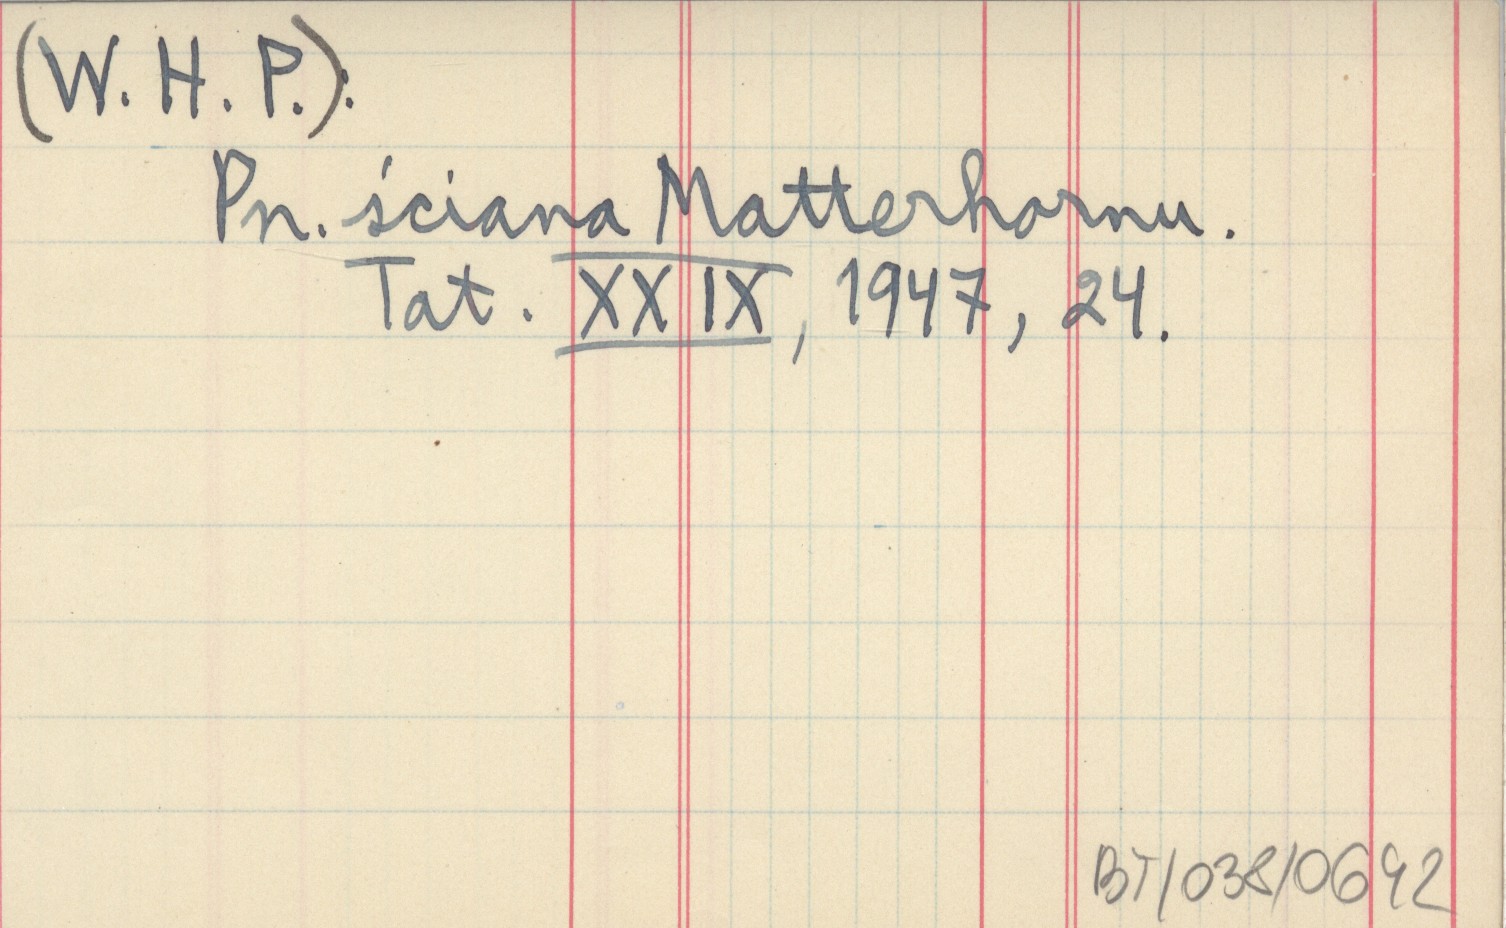 (W. H. P.):
Pn. ściana Matterhornu.
Tat. XXIX, 1947, 24.
BT/038/0692